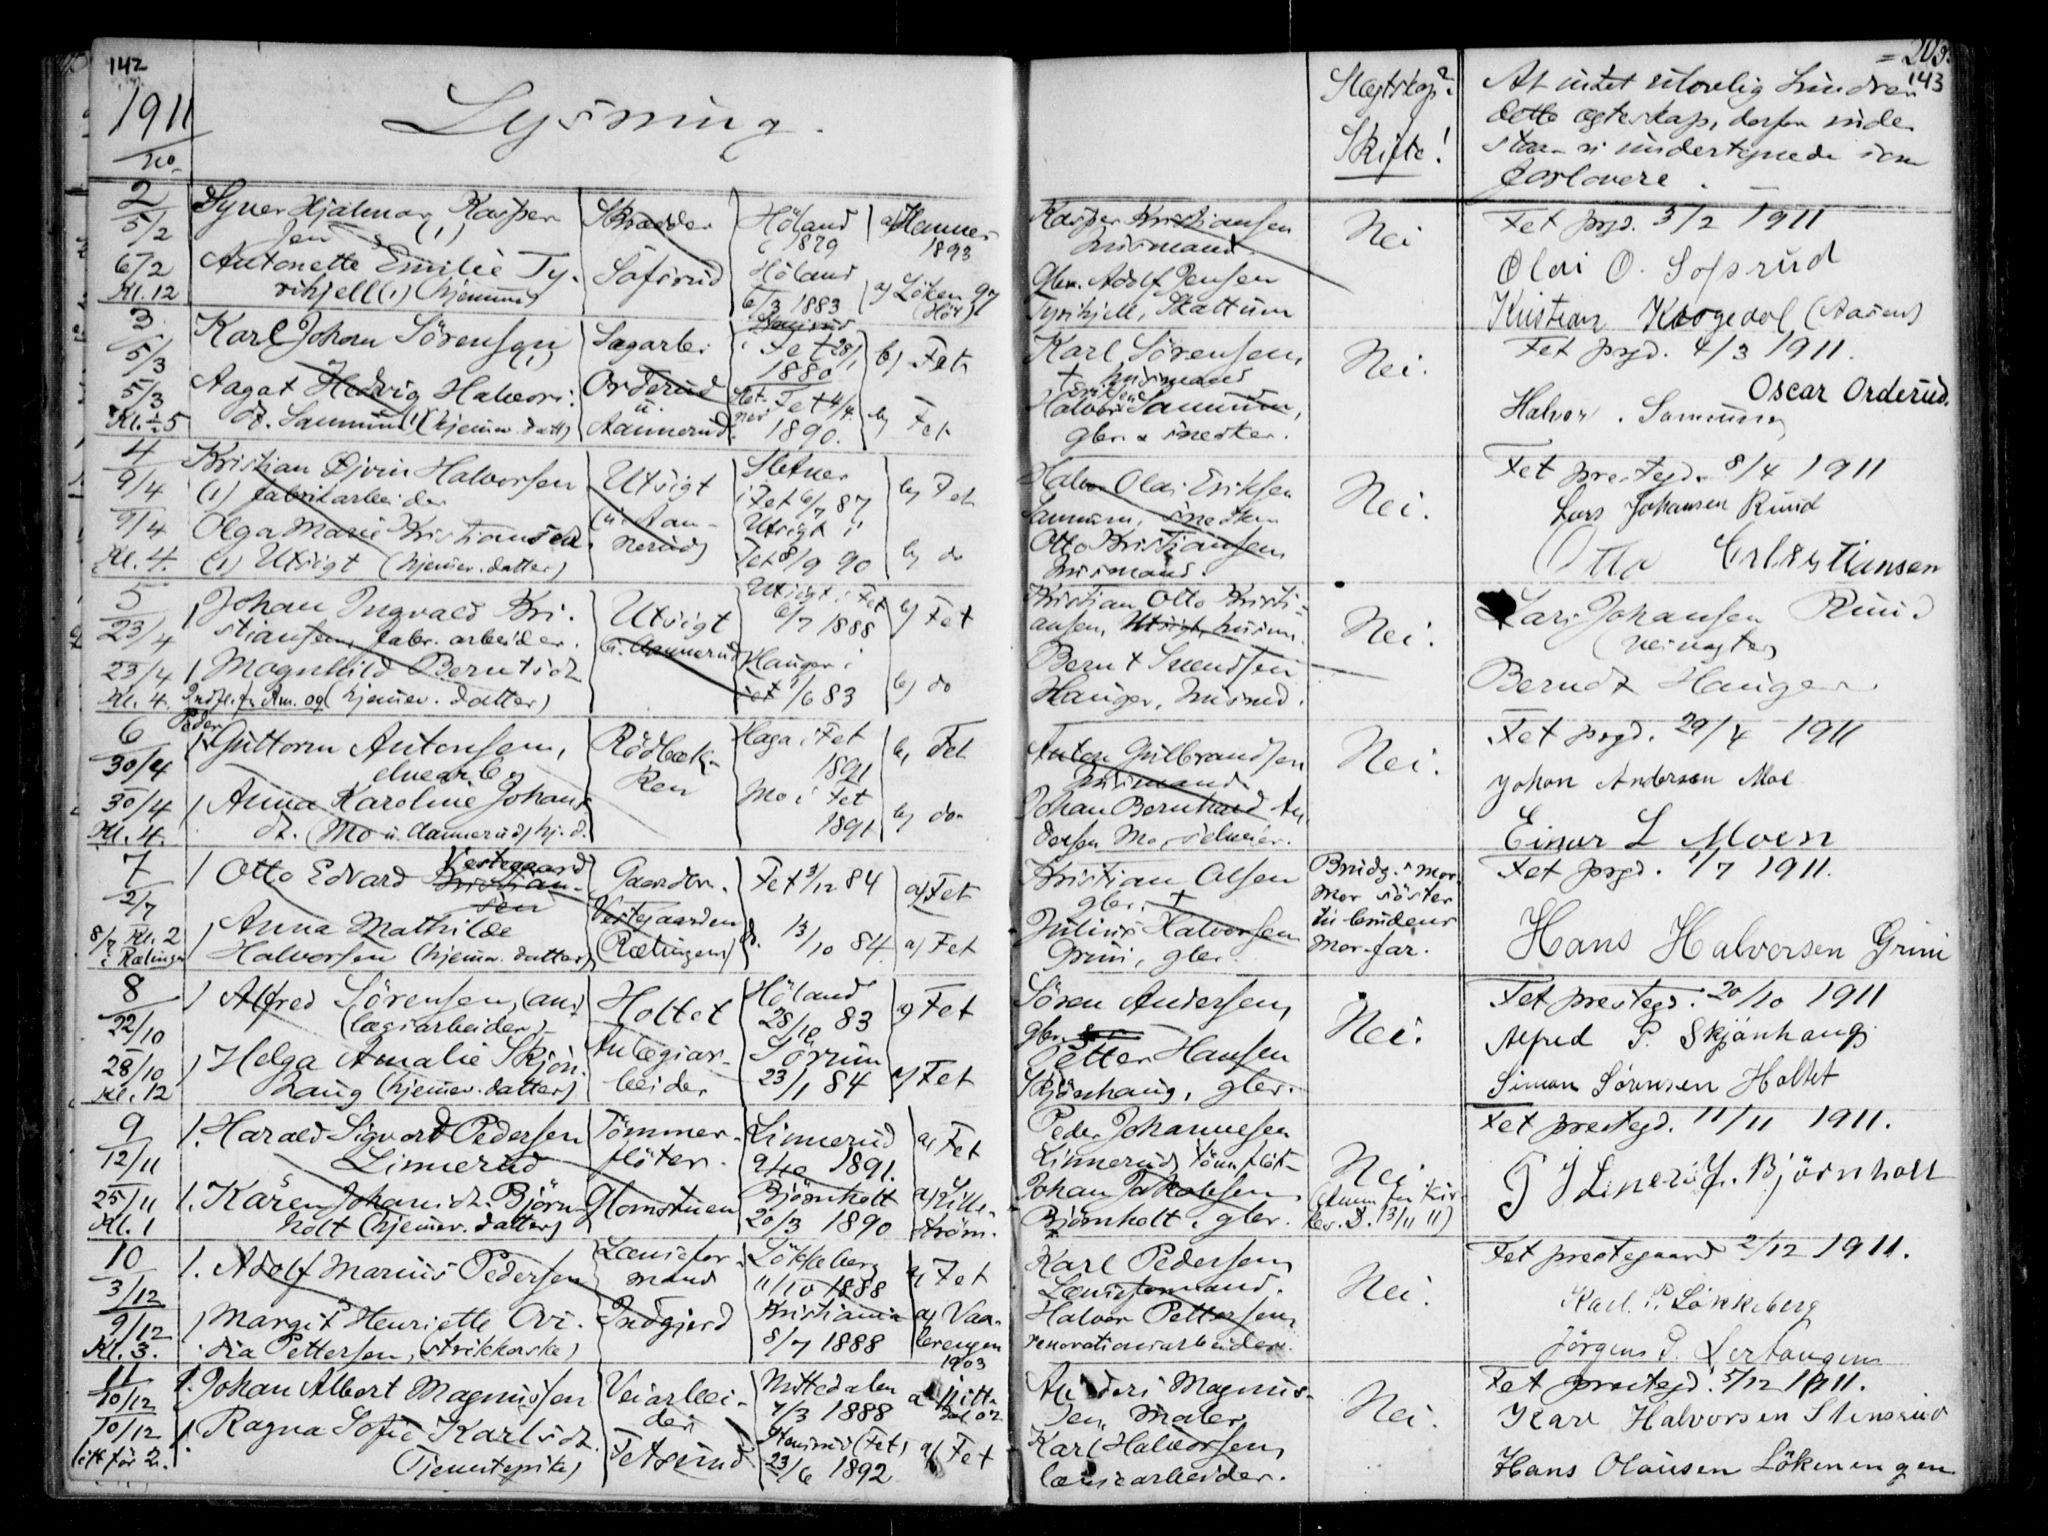 142
1911
no.
Lysning.
Slegtskap?
Skifte!
= 203
143
At intet ulovelig hindrer
dette egteskap, derfor inde-
staar vi undertegnede som
forlovere.
2
5/2
6/2
Kl. 12
Syver Hjalmar Kasper-
sen (1)
Antonette Emilie Ty-
rihjell (1) (hjemmev.)
Skrædder
Sofsrud
Höland
1879
Höland
6/3 1883
a) Hemnes
1893
a) Löken 97
(Höl.)
Kasper Kristiansen
husmand.
Gbr. Adolf Jensen
Tyrihjell, Skattum
Nei
Fet prgd. 3/2 1911
Olai O. Sofsrud
Kristian Krogedal (Aasen)
3
5/3
5/3
Kl. ÷ 5
Karl Johan Sörensen (1)
Aagot Hedvig Halvors-
dt. Sannum (1) (hjemmev. datt)
Sagarbei.
Orderud
u.
Aannerud.
i Fet 28/1
1880
Slet-
ner Fet 4/4
1890.
b) Fet
b) Fet
Karl Sörensen,
+ husmand
Halvor Sannum,
gbr. & snedker.
Nei.
Fet prgd. 4/3 1911.
Oscar Orderud.
Halvor . Sannum
4
9/4
9/4
Kl. 4.
Kristian Ejvin Halvorsen
(1) fabrikarbeider
Olga Marie Kristiansen
(1) Utsigt (hjemmev. datter)
Utsigt
(u. Aan-
nerud)
Sletner
i Fet 6/7 87
Utsigt i
Fet 8/9 90
b) Fet
b) do
Halvor Olai Eriksen
Sannum, snedker
Otto Kristiansen,
husmand.
Nei.
Fet prestegd. 8/4 1911
Lars Johansen Ruud
Otto Christiansen
5
23/4
23/4
Kl. 4.
1 Johan Ingvald Kri-
stiansen, fabr. arbeider.
1 Magnhild Berntsdt
Indfl. fr. Am. og (hjemmev. datter)
Utsigt
u. Aannerud
Utsigt i Fet
6/7 1888
Hauger i
Fet 1/6 83
b) Fet
b) do
Kristian Otto Kristi-
ansen, Utsigt, husm.
Bernt Svendsen
Hauger, husmd.
Nei.
Lars Johansen Ruud
(veivogter)
Berndt Hauger
6
30/4
30/4
Kl. 4.
Peder
1 Guttorm Antonsen,
elvearb.
1 Anna Karoline Johans-
dt. (Mo u. Aannerud) hj. d.
Rödbæk-
ken
Haga i Fet
1891
Mo i Fet
1891
b) Fet
b) do.
Anton Gulbrandsen
husmand
Johan Bernhard An-
dersen Mo, selveier.
Nei.
Fet prgd. 29/4 1911
Johan Andersen Moe
Einar L Moen
7
2/7
8/7 Kl. 2
i Rælingen
1 Otto Edvard Vestegaard
Kristian-
sen
1 Anna Mathilde
Halvorsen (hjemmev. datter)
Gaardbr.
Vestegaarden
(Rælingen)
Fet 3/12 84
13/10 84
a) Fet
a) Fet
Kristian Olsen
gbr. +
Julius Halvorsen
Grini, gbr.
Brudg.s mor-
mor söster
til brudens
mor-far.
Fet prgd. 1/7 1911.
Hans Halvorsen Grini
8
22/10
28/10
Kl. 12
1 Alfred Sörensen, (an-
lægsarbeider)
1 Helga Amalie Skjön-
haug (hjemmev. datter)
Holtet
Anlægsar-
beider
Höland
28/10 83
Sörum
23/1 84
a) Fet
a) Fet
Sören Andersen,
gbr.
Petter Hansen
Skjönhaug, gbr.
Nei.
Fet prestegd. 20/10 1911
Alfred P. Skjønhaug
Simon Sørensen Holtet
9
12/11
25/11
Kl. 1
1. Harald Sigvard Pedersen
Linnerud
1. Karen Johansdt. Björn-
holt (hjemmev. datter)
Tömmer-
flöter.
Glomstuen
Linnerud
9/10 1891.
Björnholt
20/3 1890
a) Fet
a) Lille-
ström.
Peder Johannesen
Linnerud, tömmflöt-
Johan Jakobsen,
Björnholt, gbr.
Nei.
13/11 11)
Fet prestegd. 11/11 1911.
P J Linerud. J. Bjørnholt
10
3/12
9/12
Kl. 3.
1. Adolf Marius Pedersen
1 Margit Henriette Ovi-
dia Pettersen, (strikkerske)
Lænsefor-
mand
Indgjerd
Lökkeberg
11/10 1888
Kristiania
8/7 1888
a) Fet
a) Vaa-
lerengen
1903
Karl Pedersen,
Lænseformand.
Halvor Pettersen,
renovationsarbeider.
Nei.
Fet prestegaard 2/12 1911.
Karl. P. Løkkeberg
Jörgens P. Lertangens
11
10/12
10/12
1. Johan Albert Magnussen
1. Ragna Sofie Karlsdt.
(Tjenestepike)
Veiarbei-
der
Fetsund
Nittedalen
7/3 1888
(Fet)
23/6 1892
a) Nitt-
dal 02
a) Fet
Anders Magnus-
sen, Maler,
Karl Halvorsen,
lænsearbeider.
Nei.
Fet prestegd. 5/12 1911.
Karl Halvorsen Stensrud
Hans Olausen Lökenengen